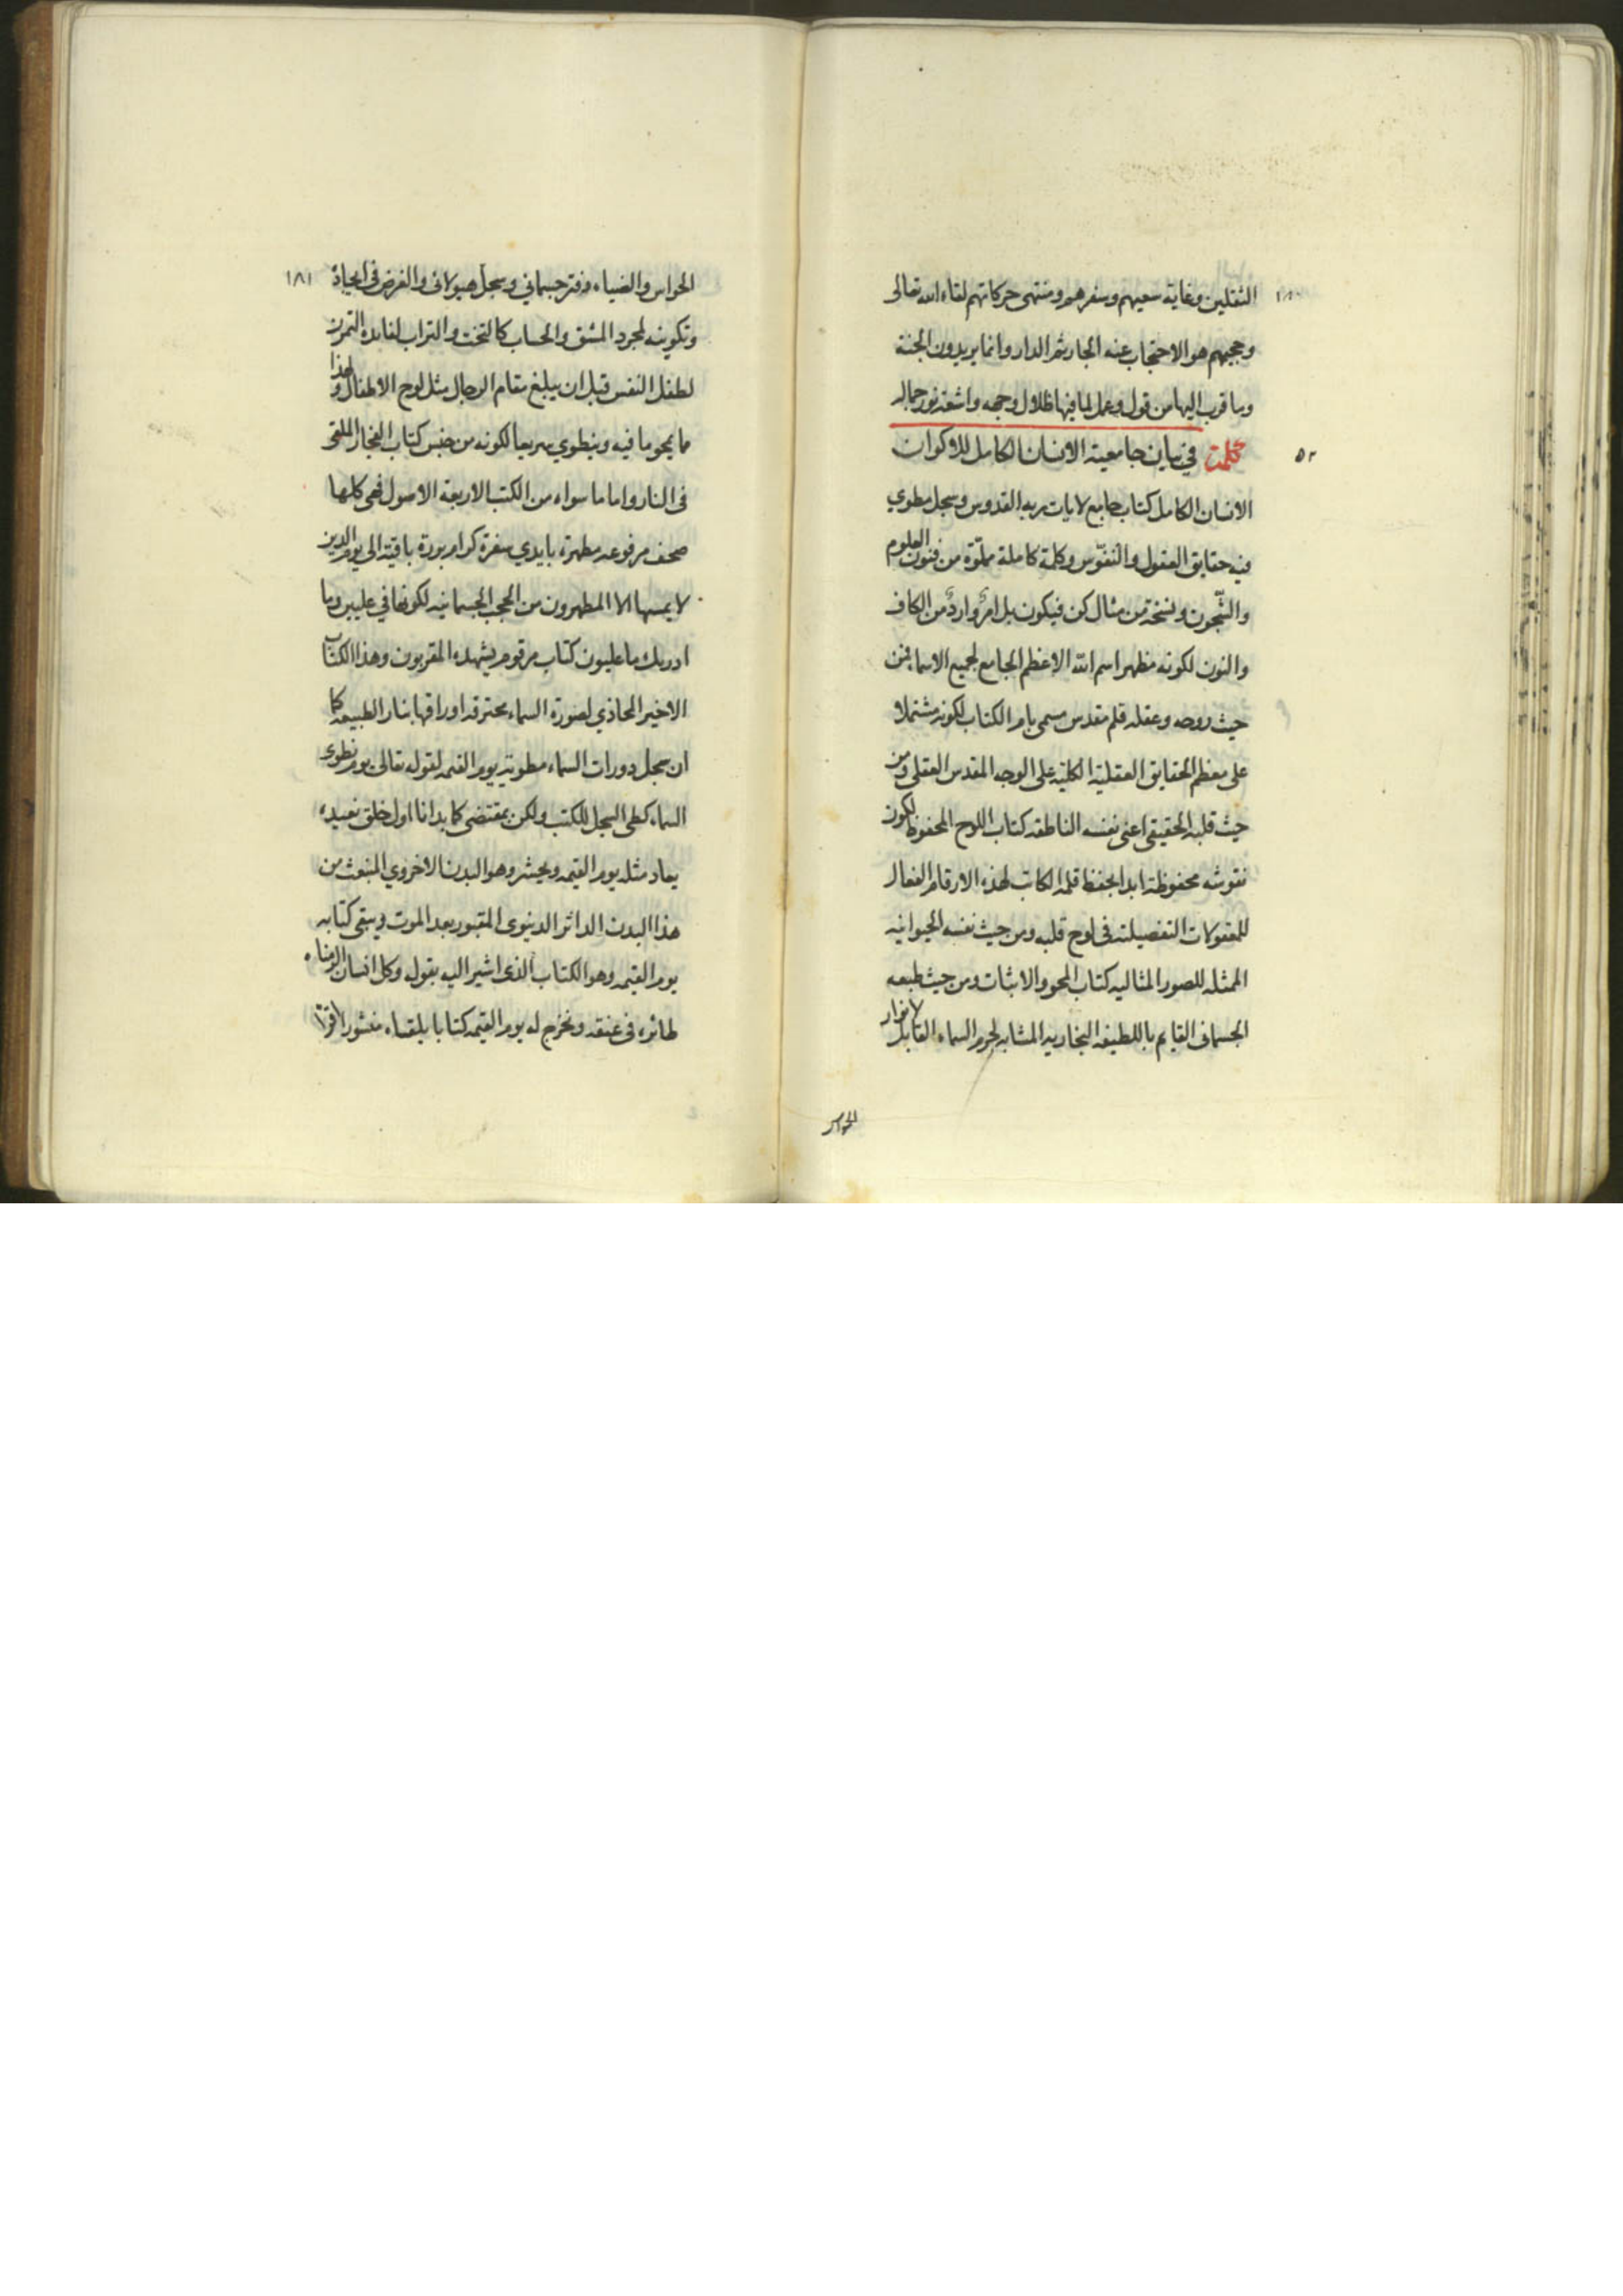 ١٨٠
الثقلين وغاية سعيهم وسفرهم ومنتهى حركاتهم لقاء الله تعالى
وحجبهم هو الاحتجاب عنه الجار ثم الدار وانما يريدون الجنة
وما قرب اليها من قول وعمل لما فيها ظلال وجهه واشعة نور جماله
٥٢
في بيان جامعية الانسان الكامل للاكوان
الانسان الكامل كتاب جامع لايات ربه القدوس وسجل مطوي
فيه حقايق العقول والنفوس وكلمة كاملة مملوة من فنون العلوم
والشجون ونسخة من مثال كن فيكون بل امر وارد من الكاف
والنون لكونه مظهر اسم الله الاعظم الجامع لجميع الاسما فمن
حيث روحه وعقله قلم مقدس مسمى بام الكتاب لكونه مشتملا
على معظم الحقايق العقلية الكلية على الوجه المقدس العقلى ومن
حيث قلبه الحقيقى اعنى نفسه الناطقه كتاب اللوح المحفوظ لكون
نقوشه محفوظة ابدا بحفظ قلمه الكاتب لهذه الارقام الفعال
للمعقولات التفصيلته فى لوح قلبه ومن حيث نفسه الحيوانيه
الممثله للصور المثاليه كتاب المحو والاثبات ومن حيث طبعه
الجسمانى القايم باللطيفه البخاريه المشابه لجرم السماء القابل لانوار
الحواس
١٨١
الحواس والضياء دفتر جسمانى وسجل هيولانى والغرض فى ايجاده
وتكوينه لمجرد المشق والحساب كالتخت والتراب لفايدة التمرن
لطفل النفس قبل ان يبلغ مقام الرجال مثل لوح الاطفال ولهذا
ما يمحو ما فيه وينطوي سريعا لكونه من جنس كتاب الفجار الملقى
فى النار واما ما سواه من الكتب الاربعة الاصول فهى كلها
صحف مرفوعه مطهرة بايدي سفرة كرام بررة باقية الى يوم الدين
لا يمسها الا المطهرون من الحجب الجسمانيه لكونها في عليين وما
ادريك ما عليون كتاب مرقوم يشهده المقربون وهذا الكتاب
الاخير المحاذي لصورة السماء محترقه اوراقها بنار الطبيعه كما
ان سجل دورات السماء مطوية يوم القيمه لقوله تعالى يوم نطوى
السماء كطى السجل للكتب ولكن بمقتضى كما بدانا اول خلق نعيده
يعاد مثله يوم القيمه ويحشر وهو البدن الاخروي المنبعث من
هذا البدن الداثر الدنيوى المقبور بعد الموت ويبقى كتابه
يوم القيمه وهو الكتاب الذى اشير اليه بقوله وكل انسان الزمناه
طائره فى عنقه ونخرج له يوم القيمه كتابا يلقيه منشورا اقرأ